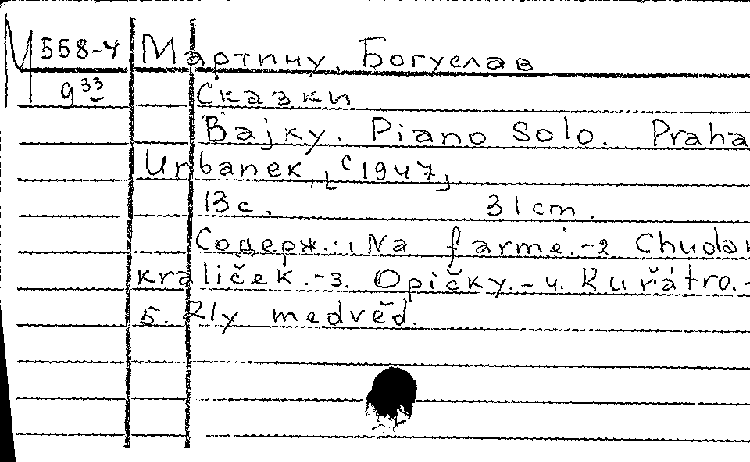 М 558-4 Мартину, Богуслав
9 33 Сказки
Bajky. Piano Solo. Praha
Urbanek, [c1947]
13 с. 31 cm.
Содерж.: 1. Na farmě.-2. Chudar
kraliček.-3. Opičky.-4. Kuřátro.-
5. Zly medvěd.